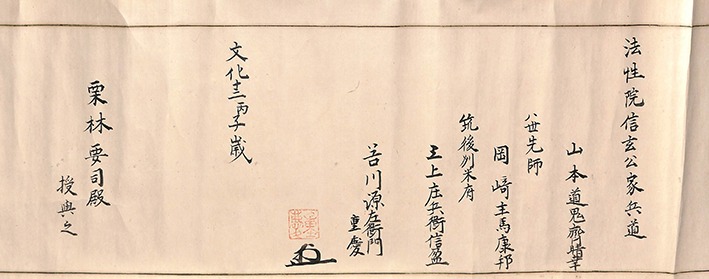 法性院信玄公家兵道
山本道鬼齊晴幸
八世先師
岡﨑主馬康邦
筑後刕米府
三上庄兵衛信盈
吉川源左衛門
重愛
文化十三丙子歳
栗林要司殿
授與之